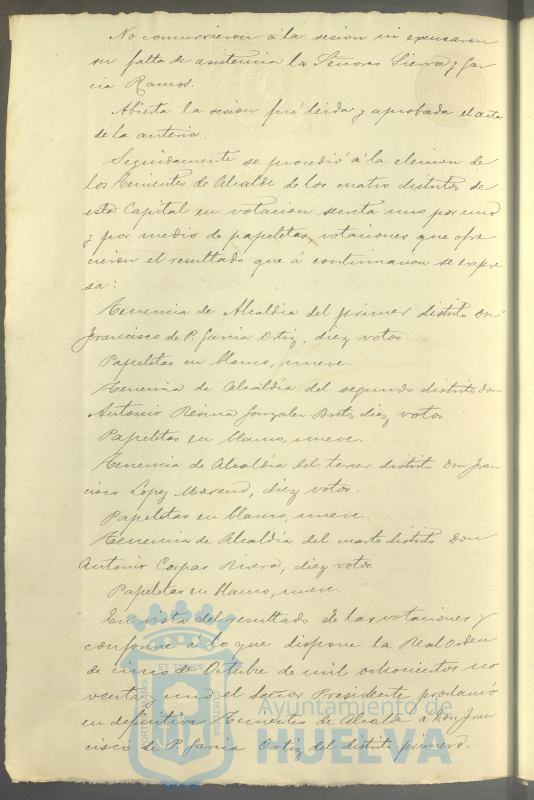 No concurrieron á la sesion ni excusaron
su falta de asistencia los Señores Sierra y Gar-
cia Ramos.
Abierta la sesion fué leida y aprobada el acta
de la anterior.
Seguidamente se procedió á la eleccion de
los Tenientes de Alcalde de los cuatro distritos de
esta Capital en votacion secreta uno por uno
y por medio de papeletas, votaciones que ofre
cieron el resultado que á continuacion se expre
sa:
Tenencia de Alcaldía del primer distrito Don
Francisco de P. Garcia Ortiz, diez votos.
Papeletas en blanco, nueve.
Tenencia de Alcaldía del segundo distrito Don
Antonio Resina Gonzalez diez votos.
Papeletas en blanco, nueve.
Tenencia de Alcaldía del tercer distrito Don Fran
cisco Lopez Moreno, diez votos.
Papeletas en blanco, nueve.
Tenencia de Alcaldía del cuarto distrito Don
Antonio Corpas Rivera, diez votos.
Papeletas en blanco, nueve.
En vista del resultado de las votaciones y
conforme á lo que dispone la Real Orden
de cinco de Octubre de mil ochocientos no
venta y uno el Señor Presidente proclamó
en definitiva Tenientes de Alcalde á Don Fran
cisco de P. Garcia Ortiz del distrito primero.
PORTUS MARIS ET TERRÆ CUSTODIA
Ayuntamiento de
HUELVA